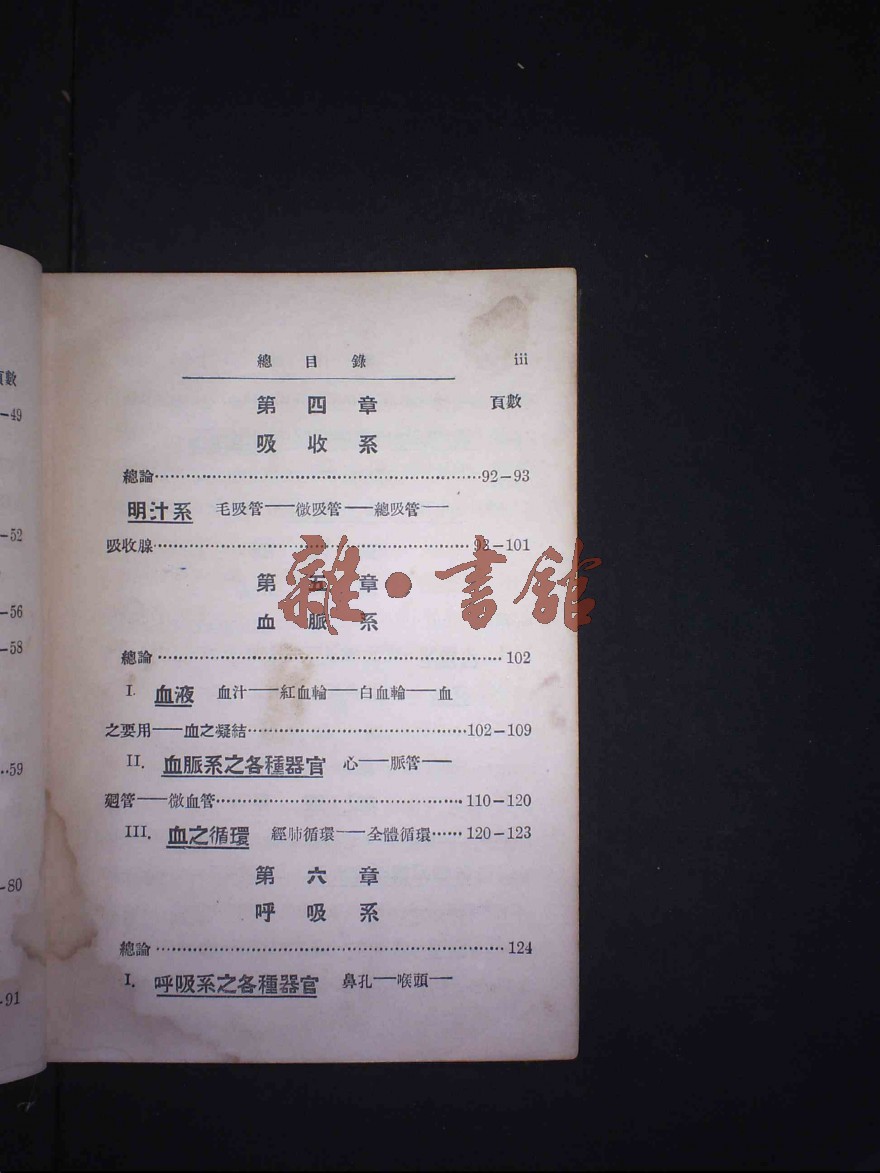 頁數
-49
-52
-56
-58
..59
-80
-91
總目錄 iii
第四章 頁數
吸收系
總論……92-93
明汁系 毛吸管——微吸管——總吸管——
吸收腺……93-101
第五章
血脈系
總論……102
I. 血液 血汁——紅血輪——白血輪——血
之要用——血之凝結……102-109
II. 血脈系之各種器官 心——脈管——
廻管——微血管……110-120
III. 血之循環 經肺循環——全體循環……120-123
第六章
呼吸系
總論……124
I. 呼吸系之各種器官 鼻孔——喉頭——
雜·書館